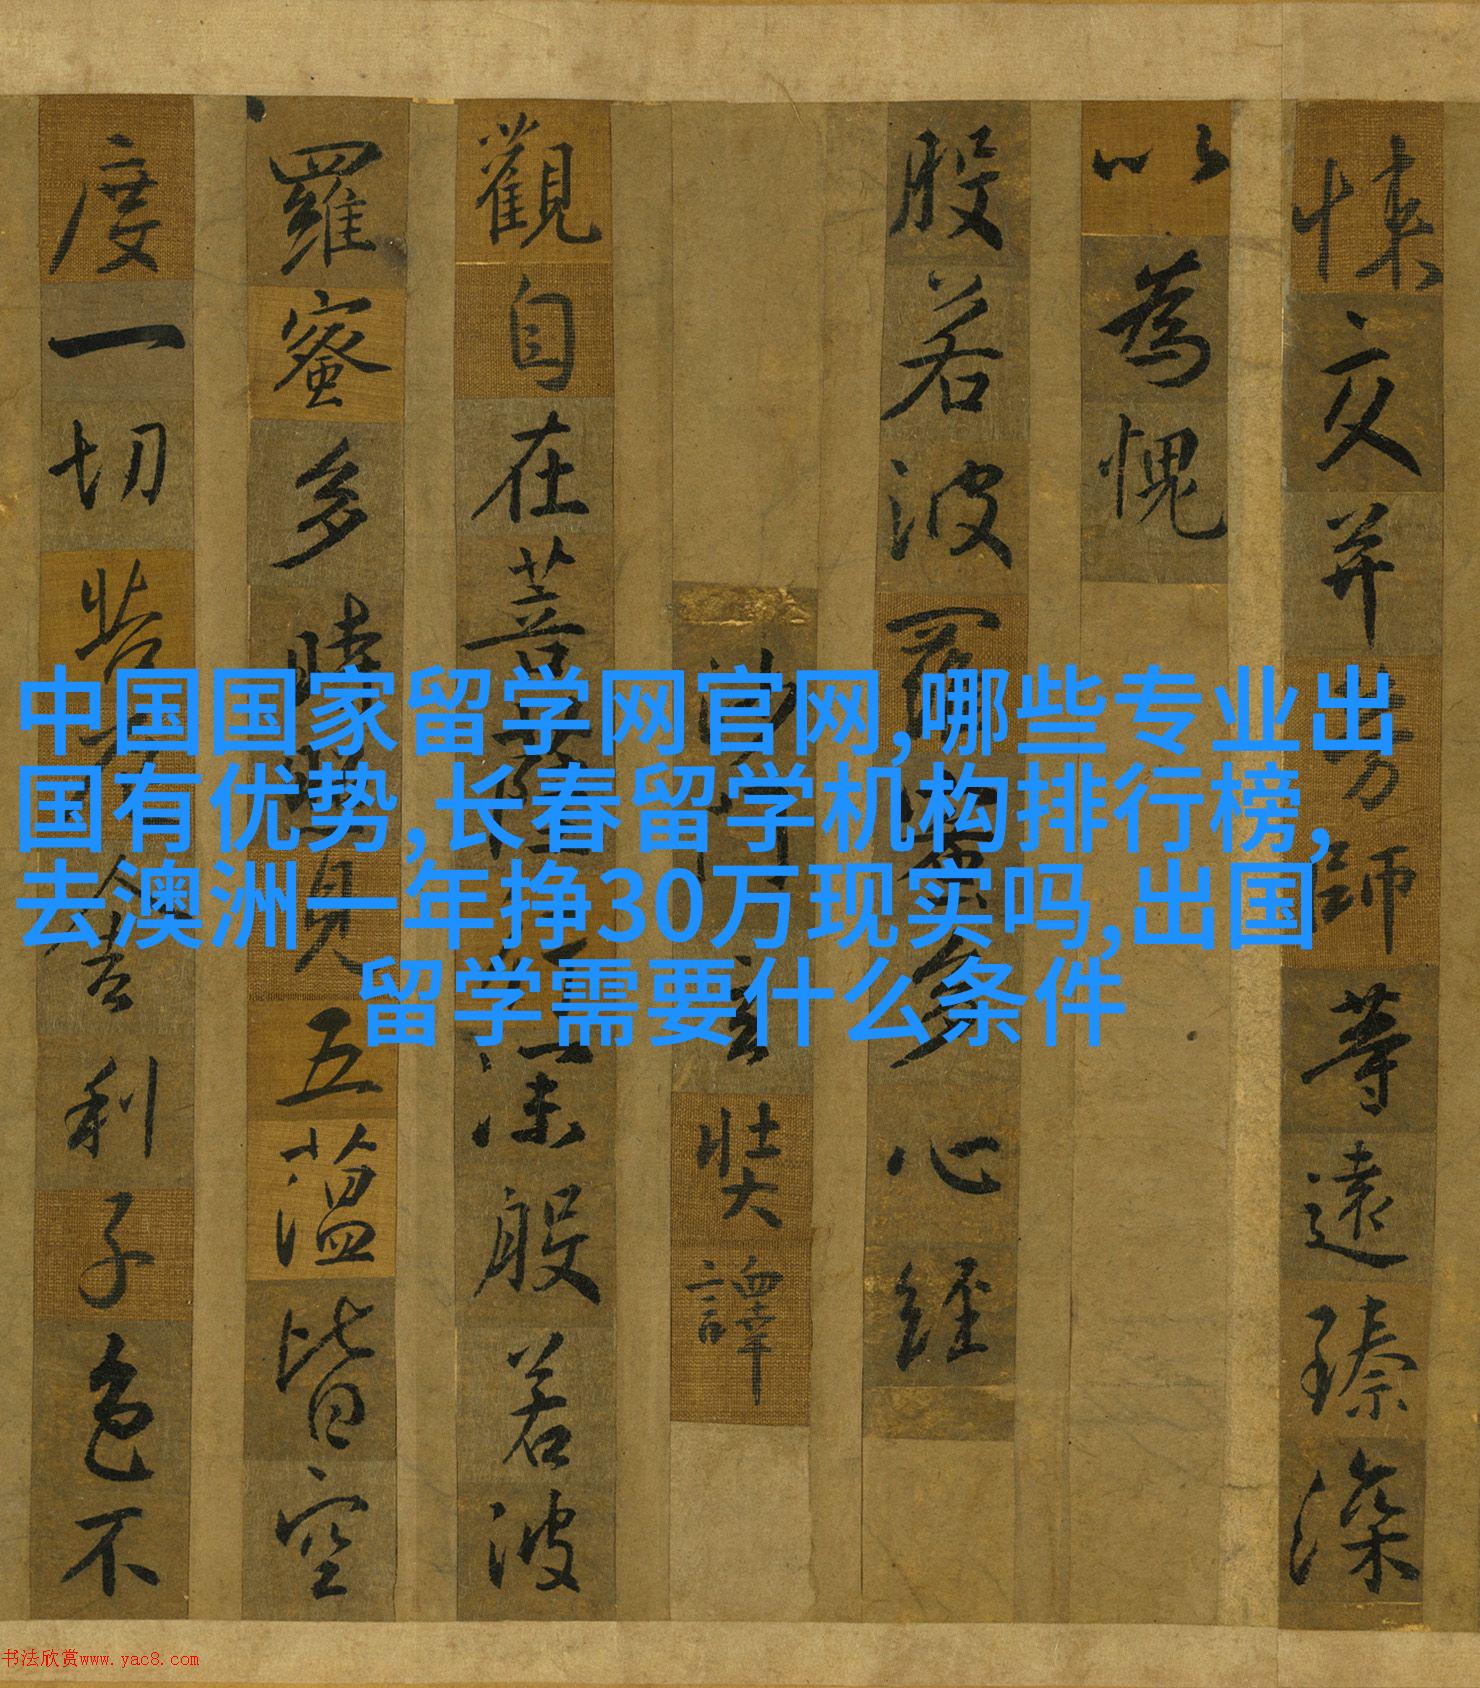 中国国家留学网官网,哪些专业出
国有优势,长春留学机构排行榜,
去澳洲一年挣30万现实吗,出国
留学需要什么条件
悚交并勞師等遠臻深
以為愧
般若波羅蜜多心經
沙門玄奘譯
觀自在菩薩行深般若波
羅蜜多時照見五蘊皆空
度一切苦厄舍利子色不
书法欣赏www.yac8.com